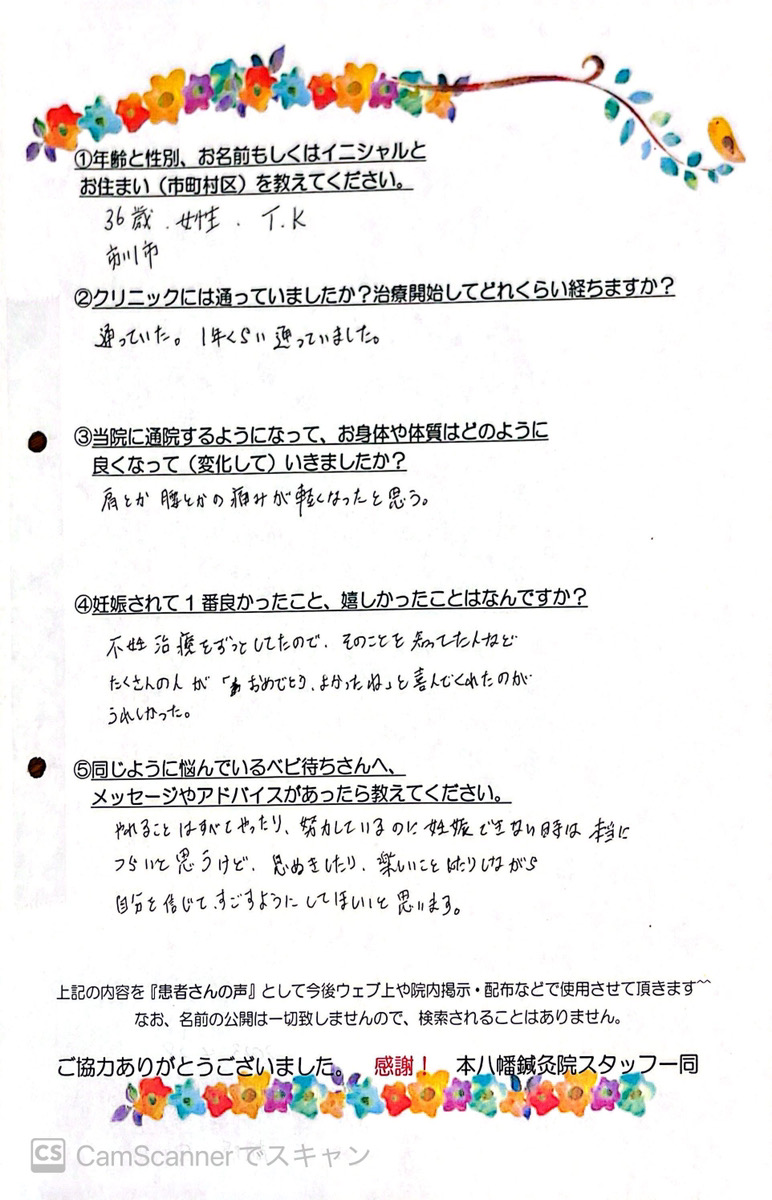 ①年齢と性別、お名前もしくはイニシャルと
お住まい（市町村区）を教えてください。
36歳．女性．T.K
市川市
②クリニックには通っていましたか？治療開始してどれくらい経ちますか？
通っていた。1年くらい通っていました。
③当院に通院するようになって、お身体や体質はどのように
良くなって（変化して）いきましたか？
肩とか腰とかの痛みが軽くなったと思う。
④妊娠されて１番良かったこと、嬉しかったことはなんですか？
不妊治療をずっとしてたので、そのことを知ってた人など
たくさんの人が「おめでとう、よかったね」と喜んでくれたのが
うれしかった。
⑤同じように悩んでいるベビ待ちさんへ、
メッセージやアドバイスがあったら教えてください。
やれることはすべてやったり、努力しているのに妊娠できない時は本当に
つらいと思うけど、息ぬきしたり、楽しいことしたりしながら
自分を信じてすごすようにしてほしいと思います。
上記の内容を『患者さんの声』として今後ウェブ上や院内掲示・配布などで使用させて頂きます^^
なお、名前の公開は一切致しませんので、検索されることはありません。
ご協力ありがとうございました。 感謝！ 本八幡鍼灸院スタッフ一同
CS CamScanner でスキャン